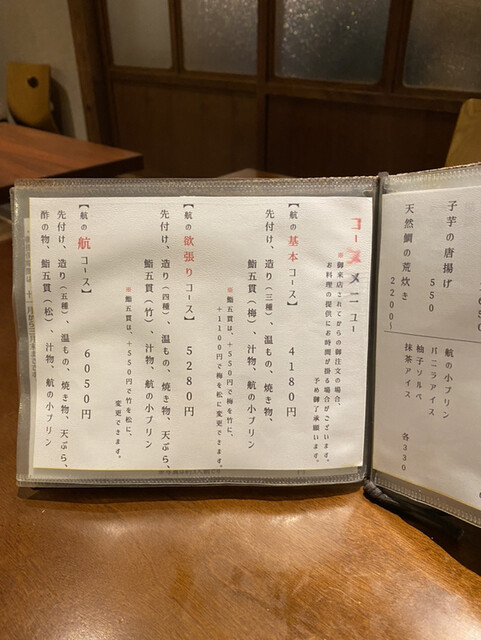 子芋の唐揚げ
550
天然鯛の荒炊き
2200〜
航の小プリン
バニラアイス
柚子ソルベ
抹茶アイス
各330
コースメニュー
※御来店されてからの御注文の場合、
お料理の提供にお時間が掛る場合がございます。
予め御了承願います。
【航の基本コース】 4180円
先付け、造り（三種）、温もの、焼き物、
鮨五貫（梅）、汁物、航の小プリン
※鮨五貫は、＋550円で梅を竹に、
＋1100円で梅を松に変更できます。
【航の欲張りコース】 5280円
先付け、造り（四種）、温もの、焼き物、天ぷら、
鮨五貫（竹）、汁物、航の小プリン
※鮨五貫は、＋550円で竹を松に、
変更できます。
【航の航コース】 6050円
先付け、造り（五種）、温もの、焼き物、天ぷら、
酢の物、鮨五貫（松）、汁物、航の小プリン